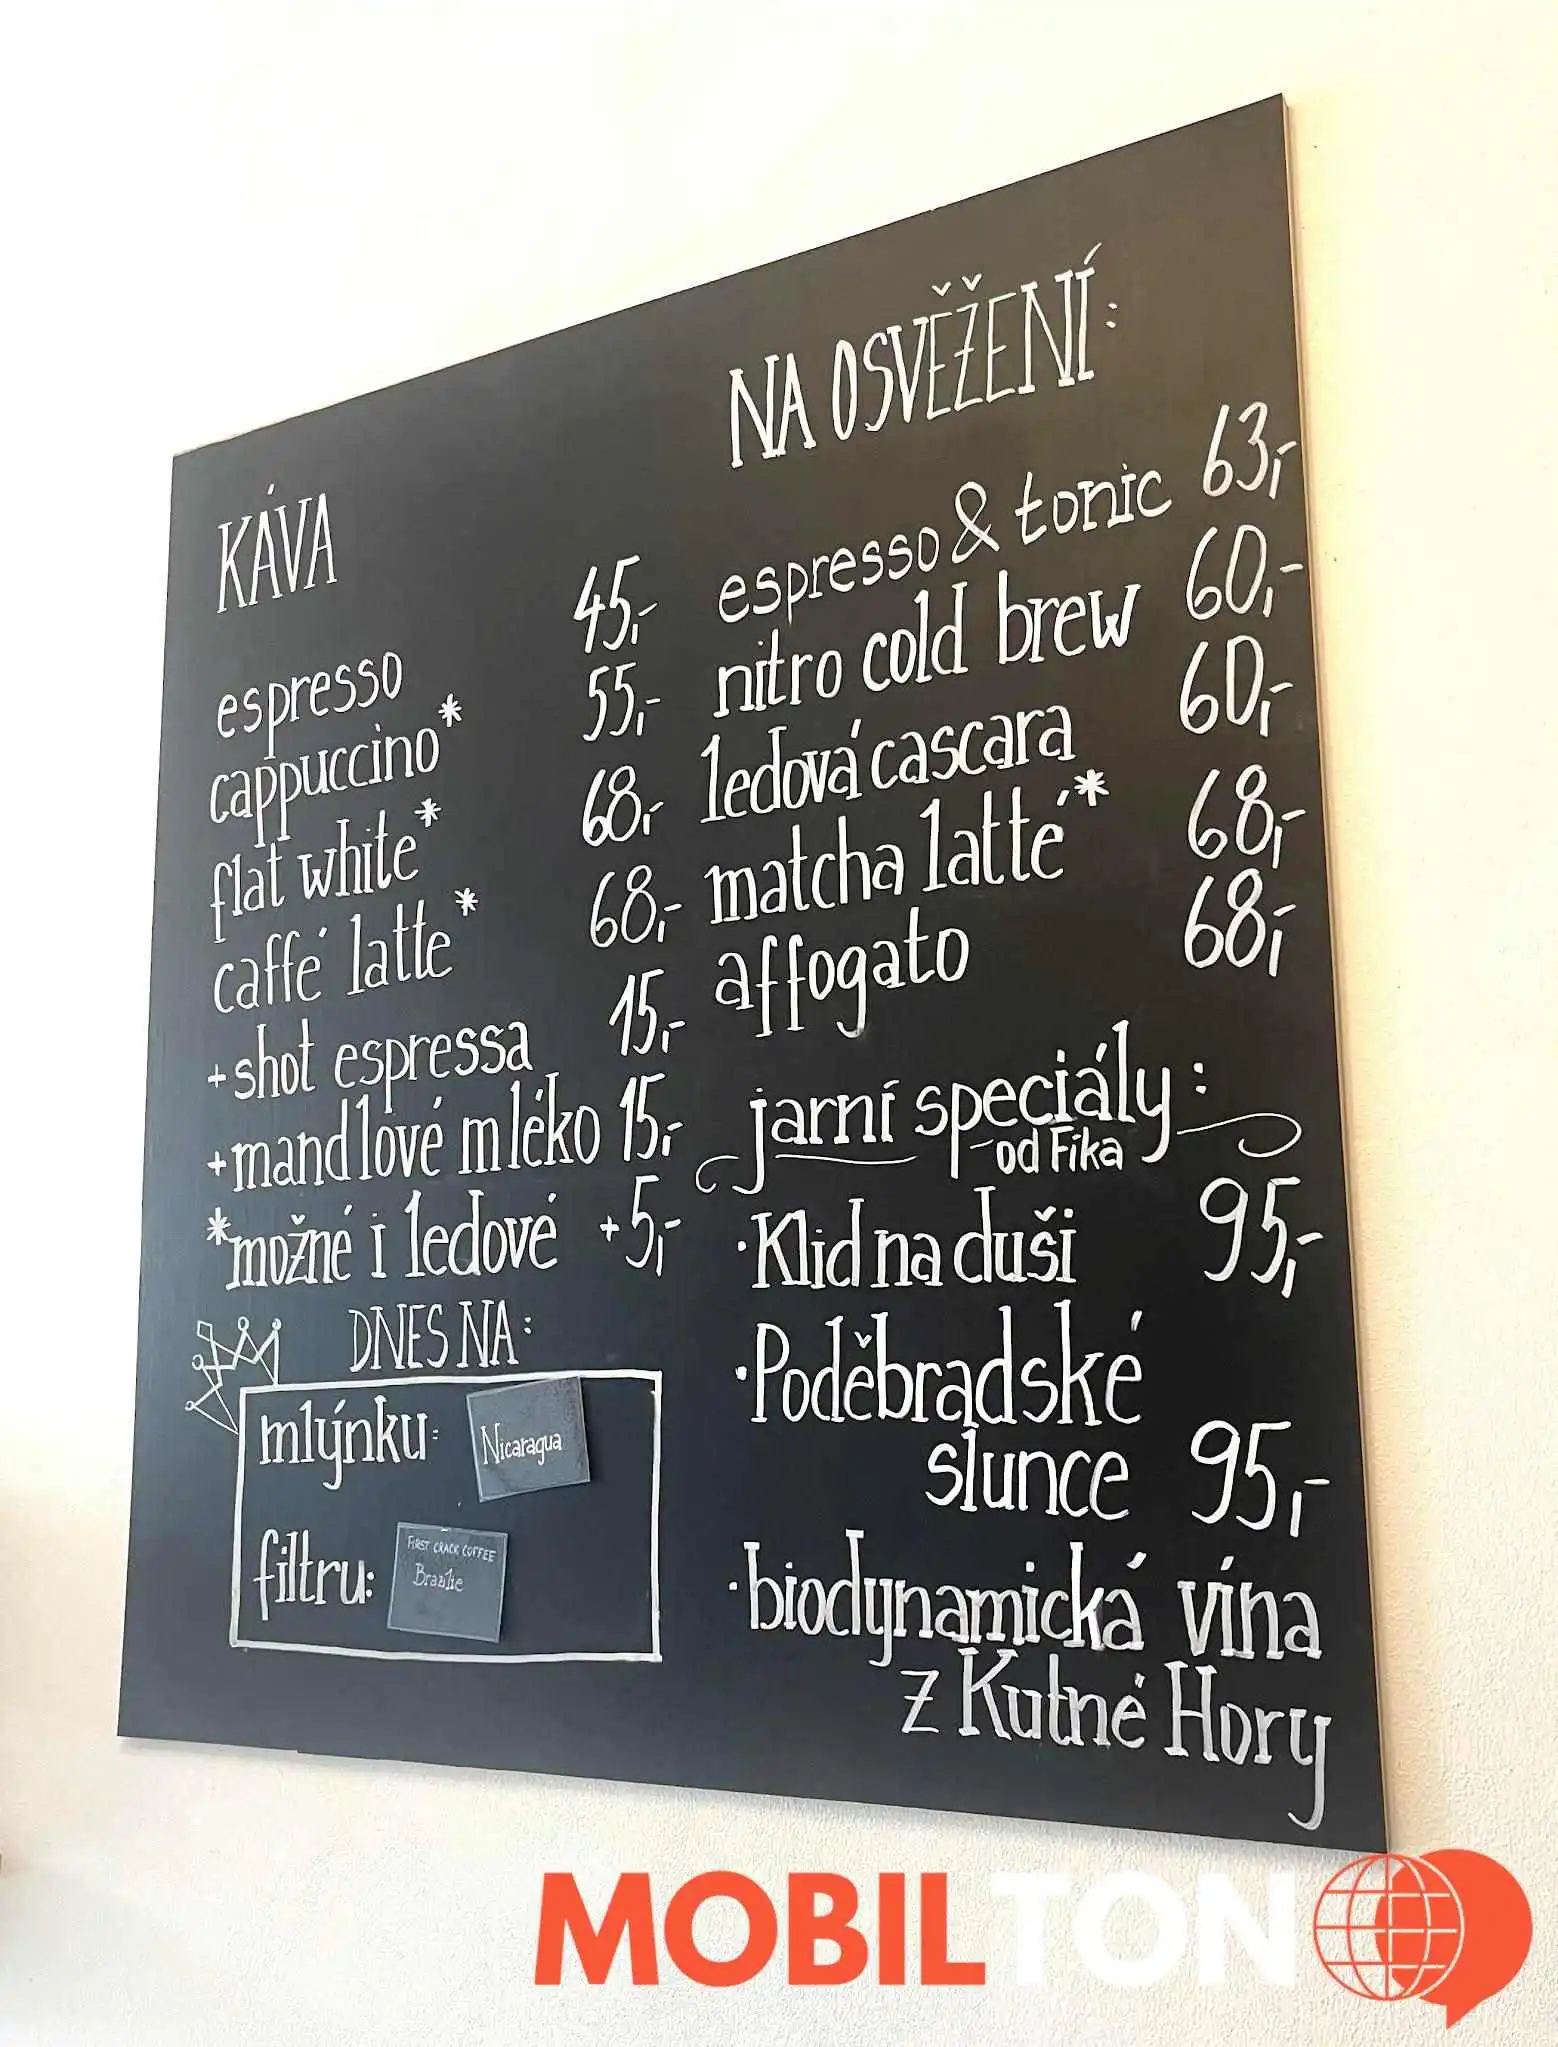 KÁVA
espresso 45,-
cappuccino* 55,-
flat white* 68,-
caffé latte* 68,-
+shot espressa 15,-
+mandlové mléko 15,-
*možné i ledové +5,-
DNES NA:
mlýnku: Nicaragua
filtru: FIRST CRACK COFFEE
Brazílie
NA OSVĚŽENÍ:
espresso & tonic 63,-
nitro cold brew 60,-
ledová cascara 60,-
matcha latté* 68,-
affogato 68,-
jarní speciály:
od Fika
·Klid na duši 95,-
·Poděbradské
slunce 95,-
·biodynamická vína
z Kutné Hory
MOBILTON